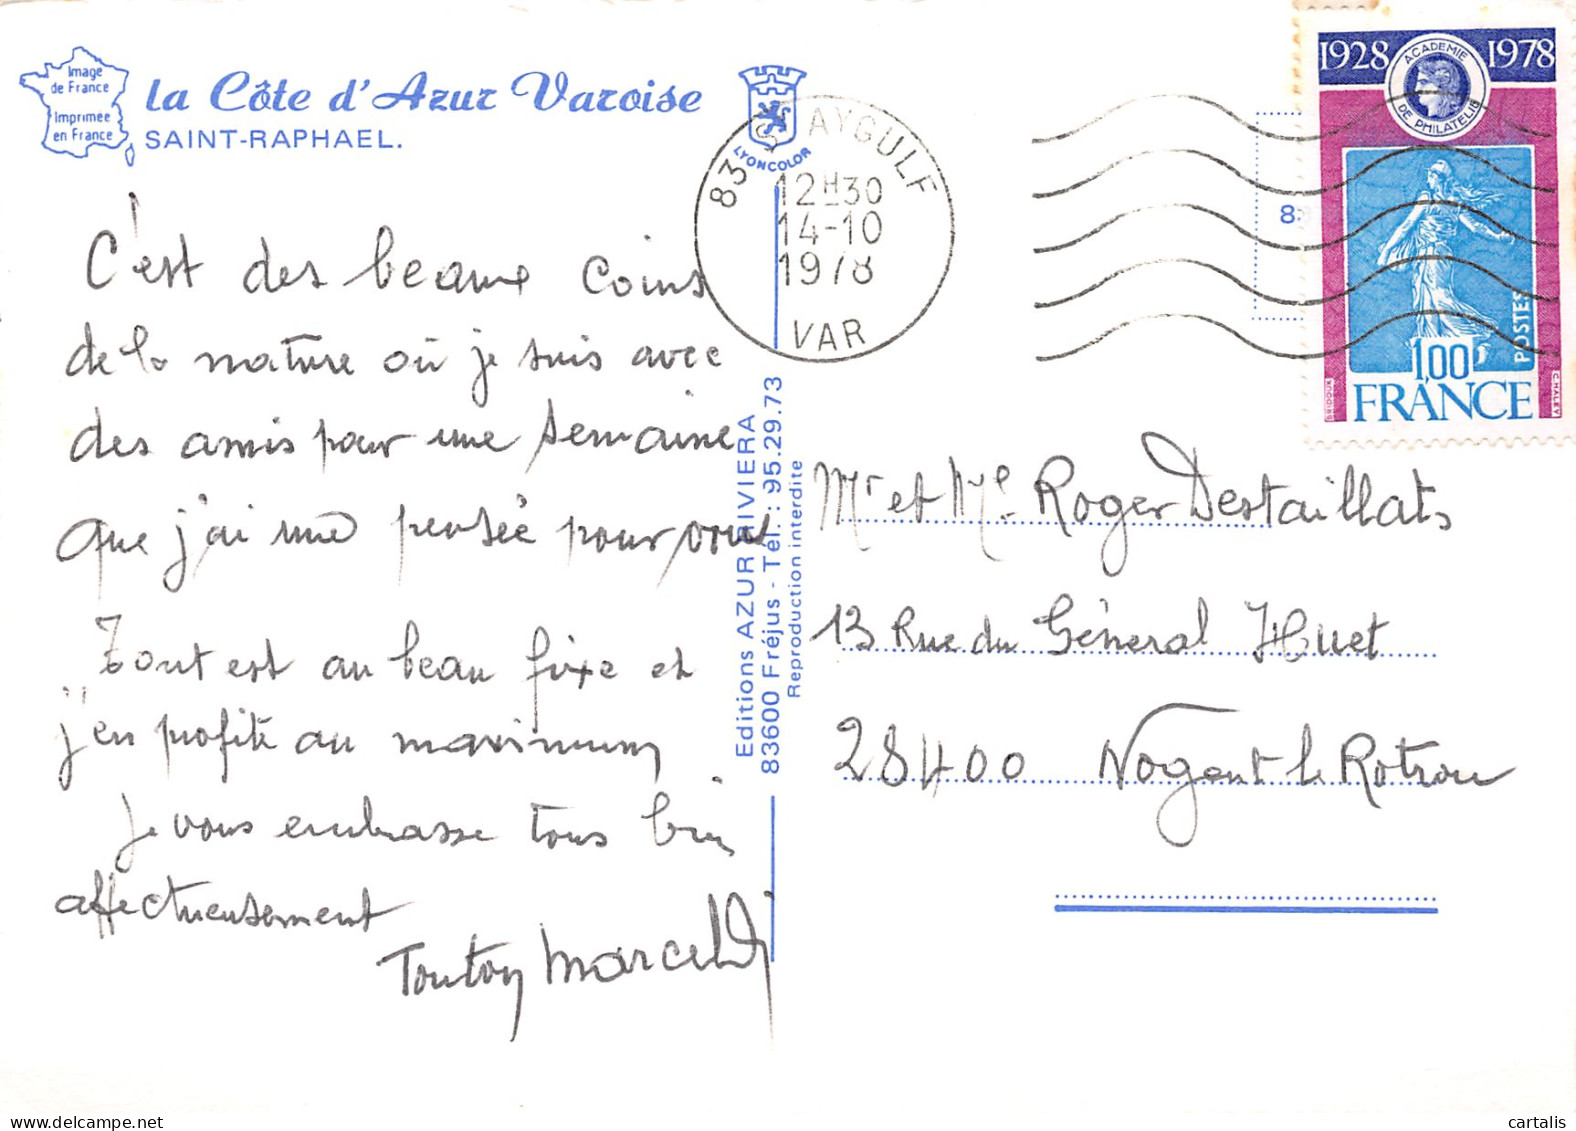 Image
de France
Imprimée
en France
la Côte d'Azur Varoise
SAINT-RAPHAEL.
LYONCOLOR
C'est des beaux coins
de la nature où je suis avec
des amis pour une semaine
que j'ai une pensée pour vous
Tout est au beau fixe et
j'en profite au maximum
Je vous embrasse tous bien
affectueusement
Tonton Marcel
Editions AZUR RIVIERA
83600 Fréjus - Tél. : 95.29.73
Reproduction interdite
83 ST AYGULF
12H30
14-10
1978
VAR
1928 1978
ACADEMIE
DE PHILATELIE
8
1,00
POSTES
FRANCE
C. HALEY
Mr et Me Roger Destaillats
13 Rue du Général Huet
28400 Nogent le Rotrou
cartalis